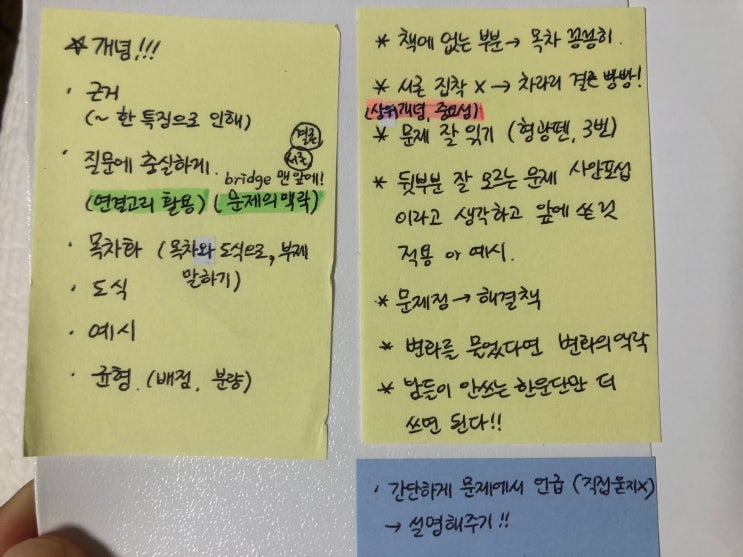 ☆ 개념!!!
· 근거
(~ 한 특징으로 인해)
· 질문에 충실하게.
결론
서론
bridge 맨 앞에!
(연결고리 활용) (문제의 맥락)
· 목차화 (목차와 도식으로, 부제
말하기)
· 도식
· 예시
· 균형. (배점, 분량)
* 책에 없는 부분 → 목차 꼼꼼히.
* 서론 집착 X → 차라리 결론 빵빵!
(상위개념, 중요성)
* 문제 잘 읽기 (형광펜, 3번)
* 뒷부분 잘 모르는 문제 사안포섭
이라고 생각하고 앞에 쓴 것
적용 or 예시.
* 문제점 → 해결책
* 변화를 물었다면 변화의 맥락
* 남들이 안쓰는 한문단만 더
쓰면 된다!!
· 간단하게 문제에서 언급 (직접묻지X)
→ 설명해주기!!